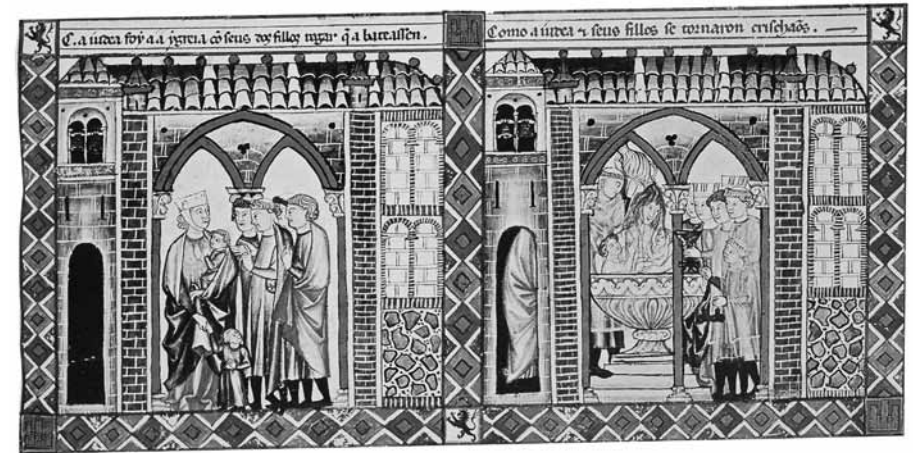 C. a iudea foy a a ygreia cõ seus dox fillos rogar q̃ a bateassen.
Como a iudea ⁊ seus fillos se tornaron crischaõs.